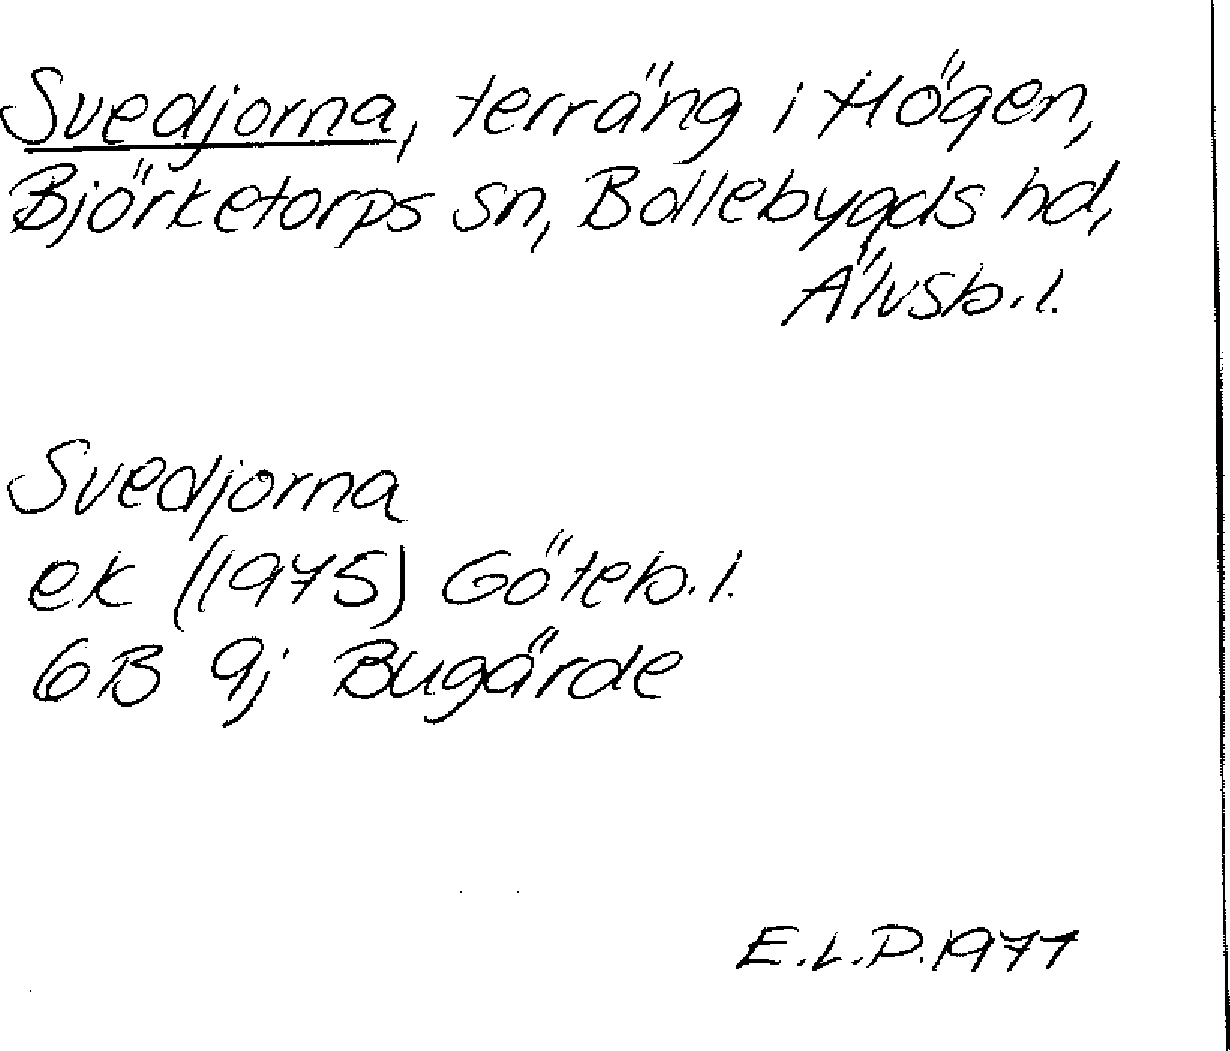 Svedjorna, terräng i Högen,
Björketorps sn, Bollebygds hd,
Älvsb.l.
Svedjorna
ek (1975) Göteb.l.
6B 9j Bugärde
E.L.P. 1977